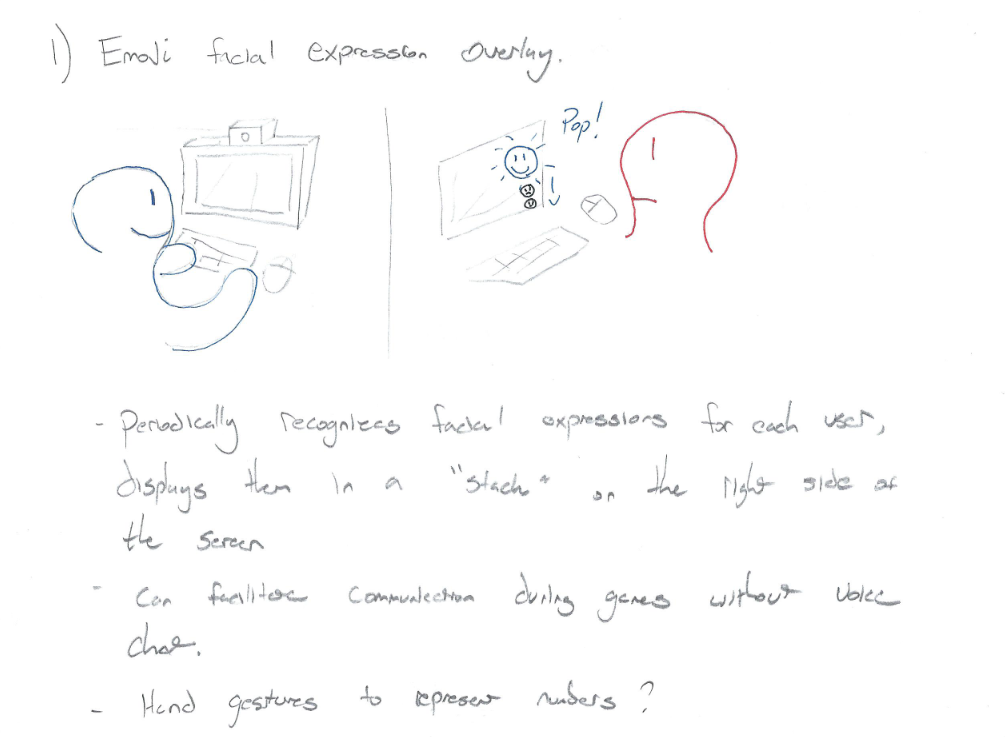 1) Emoji facial expression overlay.
Pop!
- Periodically recognizes facial expressions for each user,
displays them in a "stack" on the right side of
the screen
- Can facilitate communication during games without voice
chat.
- Hand gestures to represent numbers?